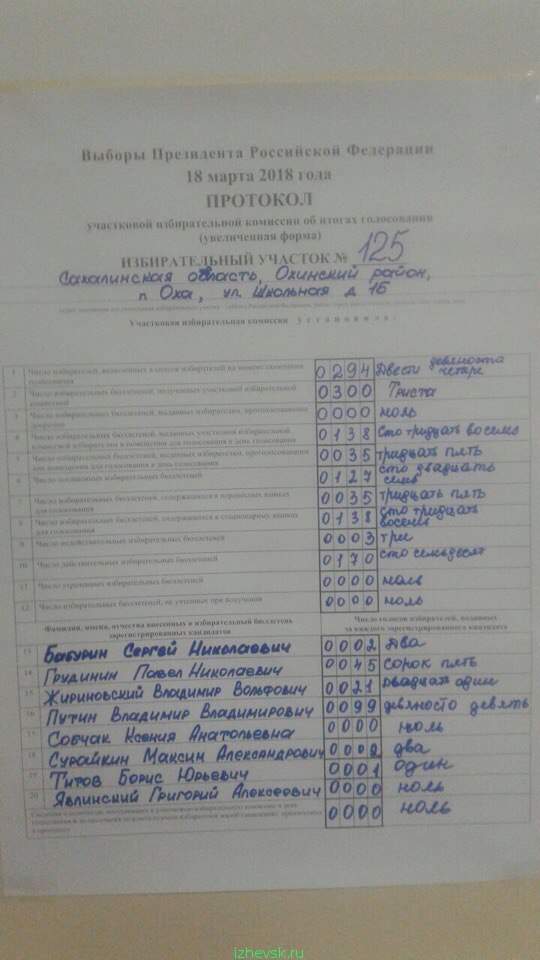 Выборы Президента Российской Федерации
18 марта 2018 года
ПРОТОКОЛ
участковой избирательной комиссии об итогах голосования
(увеличенная форма)
ИЗБИРАТЕЛЬНЫЙ УЧАСТОК № 125
Сахалинская область, Охинский район,
п Оха, ул. Школьная д 16
Участковая избирательная комиссия установила:
1 Число избирателей, включенных в список избирателей на момент окончания голосования 0294 Двести девяносто четыре
2 Число избирательных бюллетеней, полученных участковой избирательной комиссией 0300 Триста
3 Число избирательных бюллетеней, выданных избирателям, проголосовавшим досрочно 0000 ноль
4 Число избирательных бюллетеней, выданных участковой избирательной комиссией избирателям в помещении для голосования в день голосования 0138 Сто тридцать восемь
5 Число избирательных бюллетеней, выданных избирателям, проголосовавшим вне помещения для голосования в день голосования 0035 тридцать пять
6 Число погашенных избирательных бюллетеней 0127 сто двадцать семь
7 Число избирательных бюллетеней, содержащихся в переносных ящиках для голосования 0035 тридцать пять
8 Число избирательных бюллетеней, содержащихся в стационарных ящиках для голосования 0138 сто тридцать восемь
9 Число недействительных избирательных бюллетеней 0003 три
10 Число действительных избирательных бюллетеней 0170 сто семьдесят
11 Число утраченных избирательных бюллетеней 0000 ноль
12 Число избирательных бюллетеней, не учтенных при получении 0000 ноль
Фамилии, имена, отчества внесенных в избирательный бюллетень зарегистрированных кандидатов
Число голосов избирателей, поданных за каждого зарегистрированного кандидата
13 Бабурин Сергей Николаевич 0002 Два
14 Грудинин Павел Николаевич 0045 сорок пять
15 Жириновский Владимир Вольфович 0021 двадцать один
16 Путин Владимир Владимирович 0099 девяносто девять
17 Собчак Ксения Анатольевна 0000 ноль
18 Сурайкин Максим Александрович 0002 два
19 Титов Борис Юрьевич 0001 один
20 Явлинский Григорий Алексеевич 0000 ноль
0000 ноль
izhevsk.ru